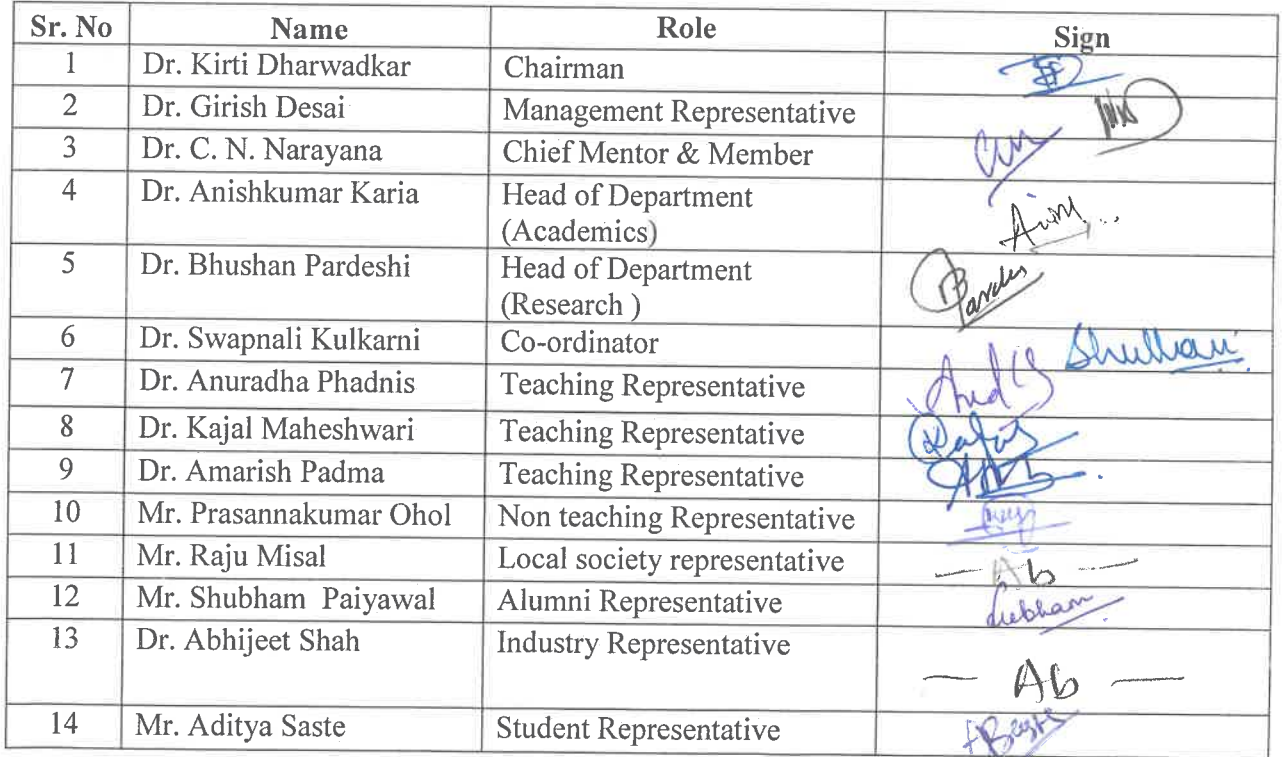 Sr. No Name Role Sign
1 Dr. Kirti Dharwadkar Chairman
2 Dr. Girish Desai Management Representative
3 Dr. C. N. Narayana Chief Mentor & Member
4 Dr. Anishkumar Karia Head of Department
(Academics)
5 Dr. Bhushan Pardeshi Head of Department
(Research )
6 Dr. Swapnali Kulkarni Co-ordinator
7 Dr. Anuradha Phadnis Teaching Representative
8 Dr. Kajal Maheshwari Teaching Representative
9 Dr. Amarish Padma Teaching Representative
10 Mr. Prasannakumar Ohol Non teaching Representative
11 Mr. Raju Misal Local society representative — Ab —
12 Mr. Shubham Paiyawal Alumni Representative
13 Dr. Abhijeet Shah Industry Representative
— Ab —
14 Mr. Aditya Saste Student Representative